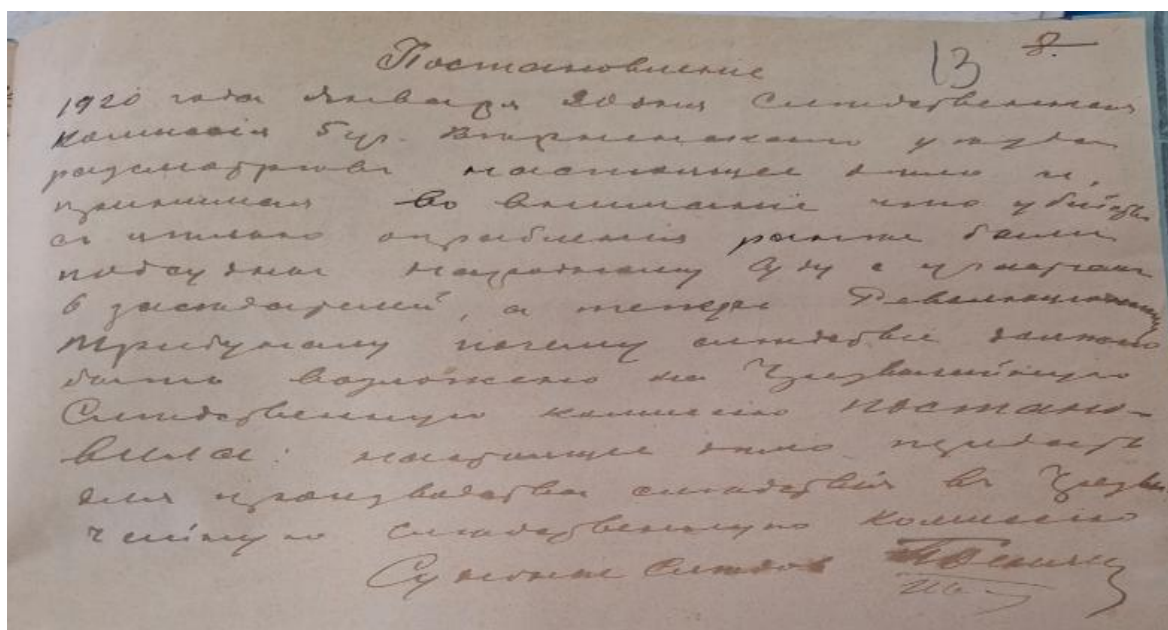 Постановление
13 8.
1920 года Января 20 дня Следственная
Комиссія 5 уч. уезда
разсмотрев настоящее дело и,
принимая во внимание что убийства
с целью ограбления ранее были
подсудны Народному Суду с участием
6 заседателей, а теперь Революционному
Трибуналу почему следствие должно
быть возложено на Чрезвычайную
Следственную комиссию постано-
вила: настоящее дело передать
для производства следствія в Чрезвы
чайную следственную комиссию
Следов